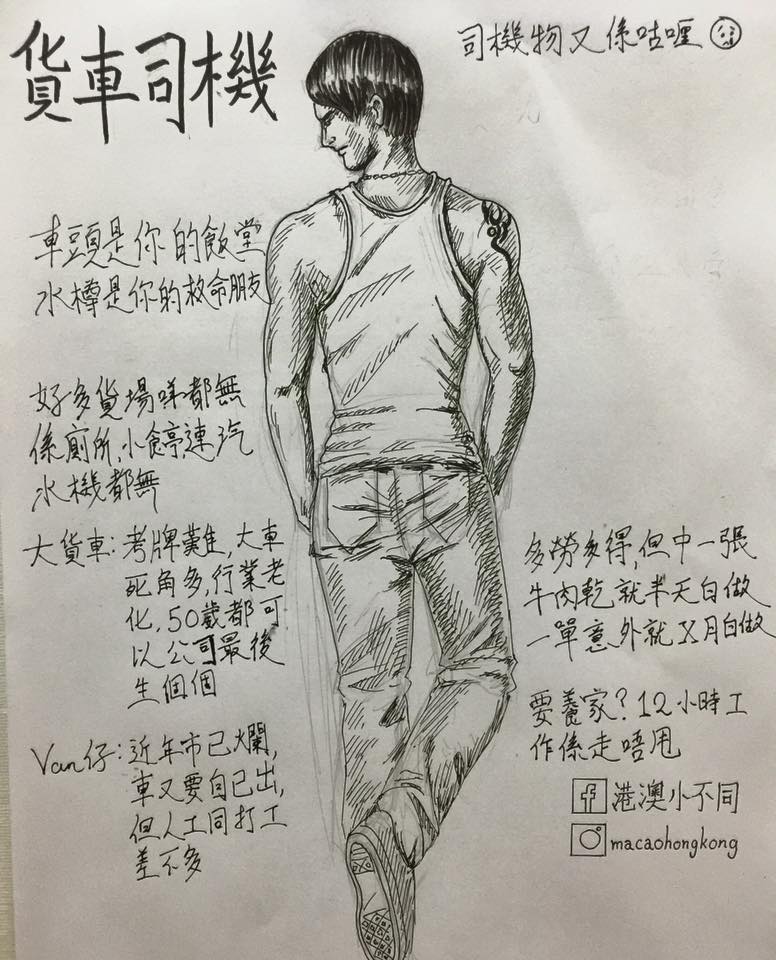 貨車司機
司機物又係咕喱
車頭是你的飯堂
水樽是你的救命朋友
好多貨場咩都無
係廁所,小食亭連汽
水機都無
大貨車:考牌難,大車
死角多,行業老
化,50歲都可
以公司最後
生個個
Van仔:近年市已爛,
車又要自己出,
但人工同打工
差不多
多勞多得,但中一張
牛肉乾就半天白做
一單意外就X月白做
要養家?12小時工
作係走唔甩
港澳小不同
macaohongkong